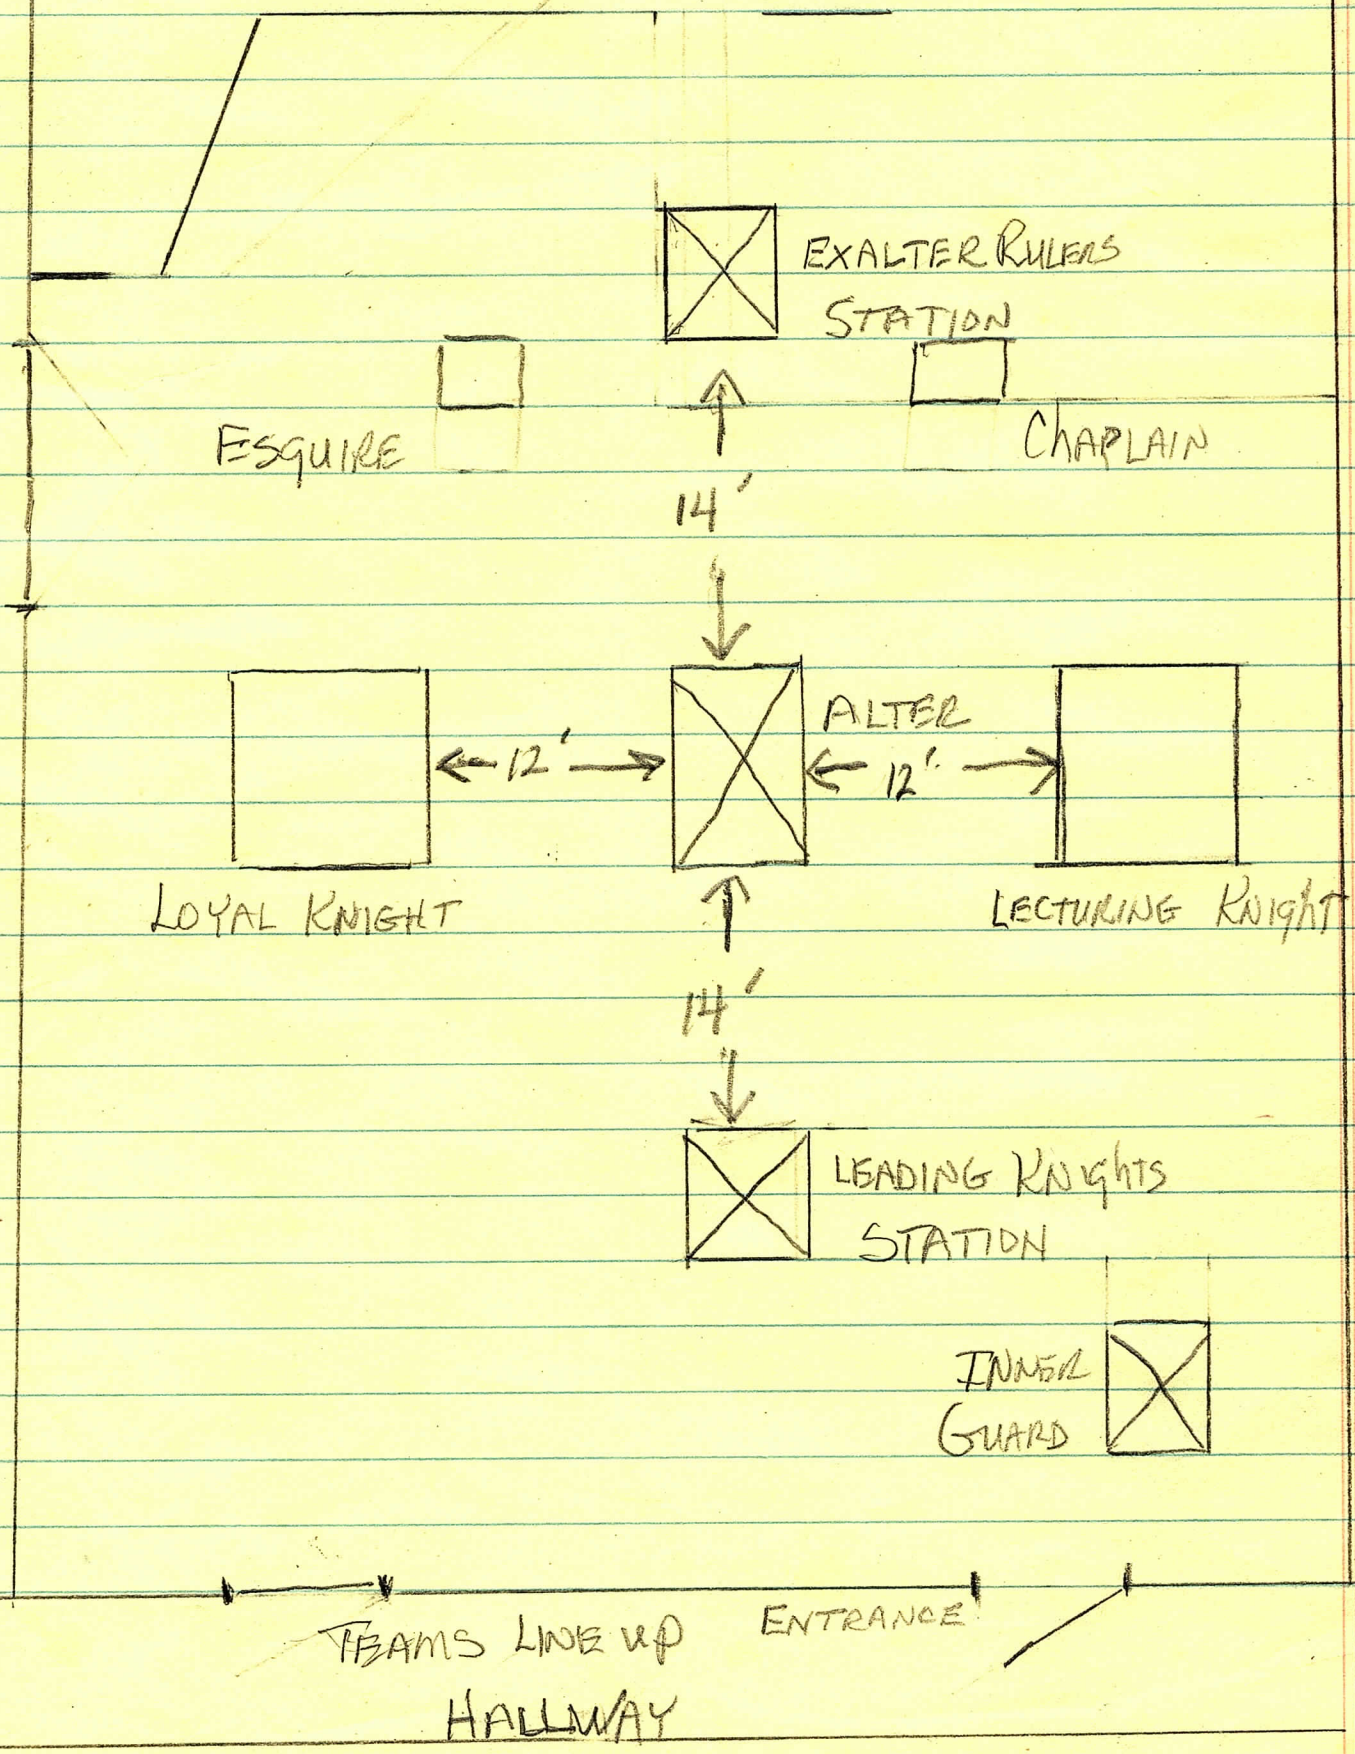 EXALTER RULERS
STATION
ESQUIRE
CHAPLAIN
14'
ALTER
12'
12'
LOYAL KNIGHT
LECTURING KNIGHT
14'
LEADING KNIGHTS
STATION
INNER
GUARD
ENTRANCE
TEAMS LINE UP
HALLWAY